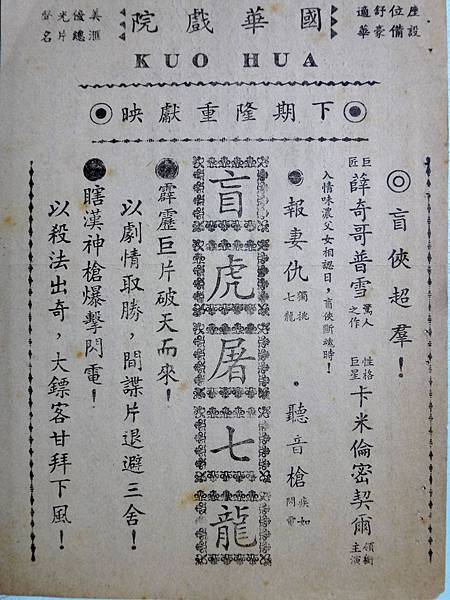 座位舒適
設備豪華
國華戲院
聲光優美
名片總滙
KUO HUA
下期隆重獻映
◎盲俠超羣！
巨匠薛奇哥普雪驚人之作 性格巨星卡米倫密契爾領銜主演
入情味濃父女相認日，盲俠斷魂時！
●報妻仇獨挑七龍•聽音槍疾如閃電
盲虎屠七龍
●霹靂巨片破天而來！
以劇情取勝，間諜片退避三舍！
●瞎漢神槍爆擊閃電！
以殺法出奇，大鏢客甘拜下風！